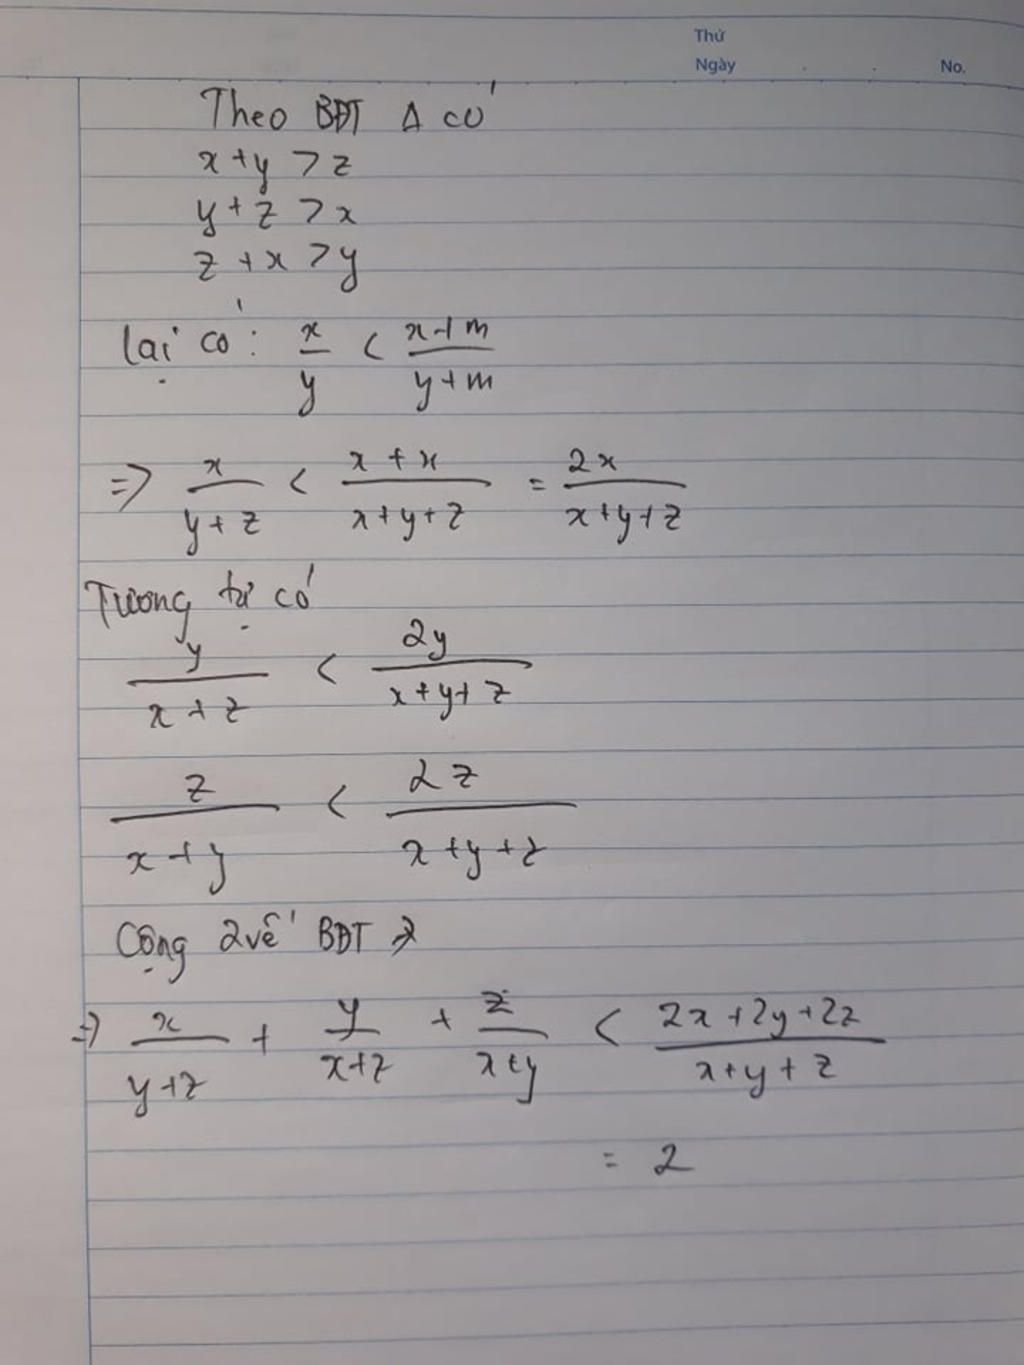 Thứ
Ngày . . No.
Theo BĐT Δ có
x + y > z
y + z > x
z + x > y
Lại có: x/y < (x+m)/(y+m)
=> x/(y+z) < (x+x)/(x+y+z) = 2x/(x+y+z)
Tương tự có
y/(x+z) < 2y/(x+y+z)
z/(x+y) < 2z/(x+y+z)
Cộng 2 vế BĐT
=> x/(y+z) + y/(x+z) + z/(x+y) < (2x+2y+2z)/(x+y+z)
= 2